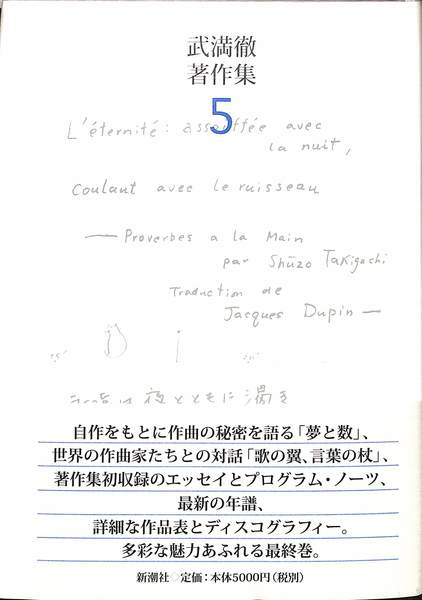 武満徹
著作集
5
L'éternité: assouffée avec
la nuit,
coulant avec le ruisseau
— Proverbes a la Main
par Shūzo Takiguchi
Traduction de
Jacques Dupin —
は夜とともに渇き
自作をもとに作曲の秘密を語る「夢と数」、
世界の作曲家たちとの対話「歌の翼、言葉の杖」、
著作集初収録のエッセイとプログラム・ノーツ、
最新の年譜、
詳細な作品表とディスコグラフィー。
多彩な魅力あふれる最終巻。
新潮社◇定価:本体5000円(税別)